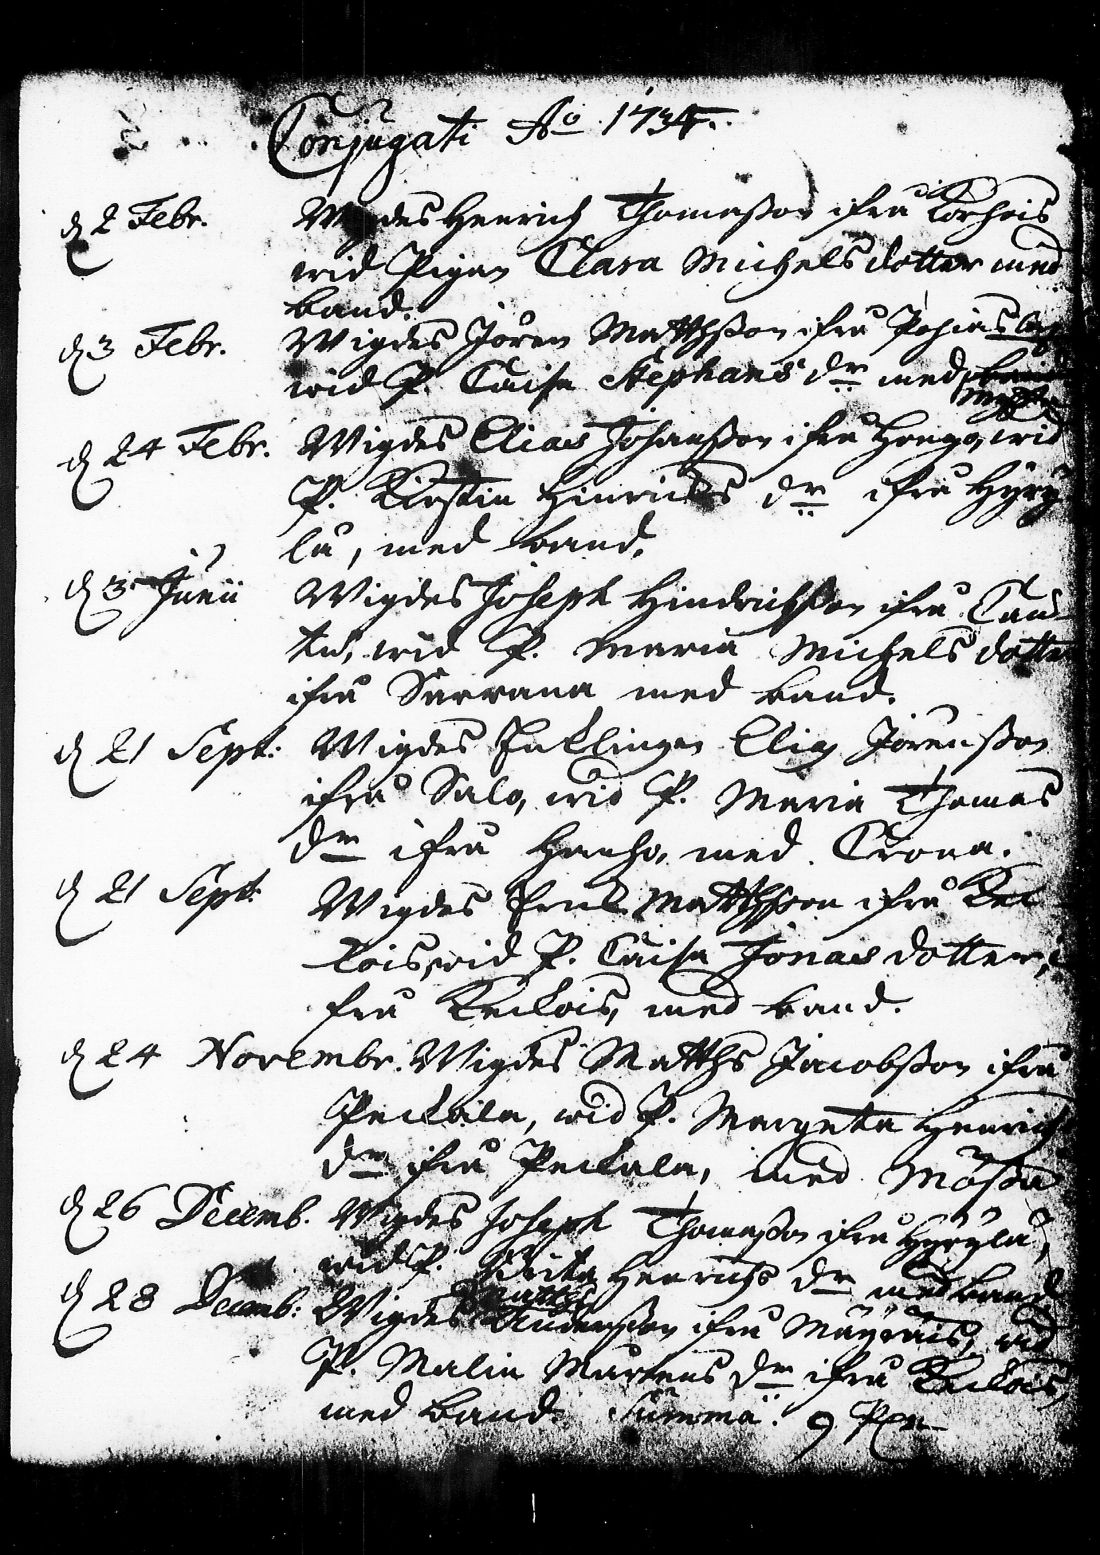 Conjugati Ao 1734.
d 2 Febr. Wigdes Henrich Thomasson ifrå Korhois
wid Pigan Clara Michels dotter med
band.
d 3 Febr. Wigdes Jören Matthsson ifrå
wid P. Caisa Stephans dr med
d 24 Febr. Wigdes Elias Johansson ifrå Hongo, wid
P. Kirstin Hinrichs dr ifrå Hyry
lä, med band.
d 3 Junii Wigdes Joseph Hindrichsson ifrå Cau
tu, wid P. Maria Michels dotter
ifrå Sarvana med band.
d 21 Sept: Wigdes Enklingen Elias Jörensson
ifrå Salo, wid P. Maria Thomas
dr ifrå Hanho, med Crona.
d 21 Sept: Wigdes Erich Matthsson ifrå Kec
kois, wid P. Caisa Jonas dotter, i
frå Keckois, med band.
d 24 Novembr. Wigdes Matths Jacobsson ifrå
Peckala, wid P. Margeta Henrichs
dr ifrå Peckala, med Mössa
d 26 Decemb. Wigdes Joseph Thomasson ifrå Hyrylä,
wid P. Brita Henrichs dr med band
Matths
d 28 Decemb: Wigdes Andersson ifrå Mäyräis, wid
P. Malin Mårtens dr ifrå Keckois,
med band. Summa: 9 Par